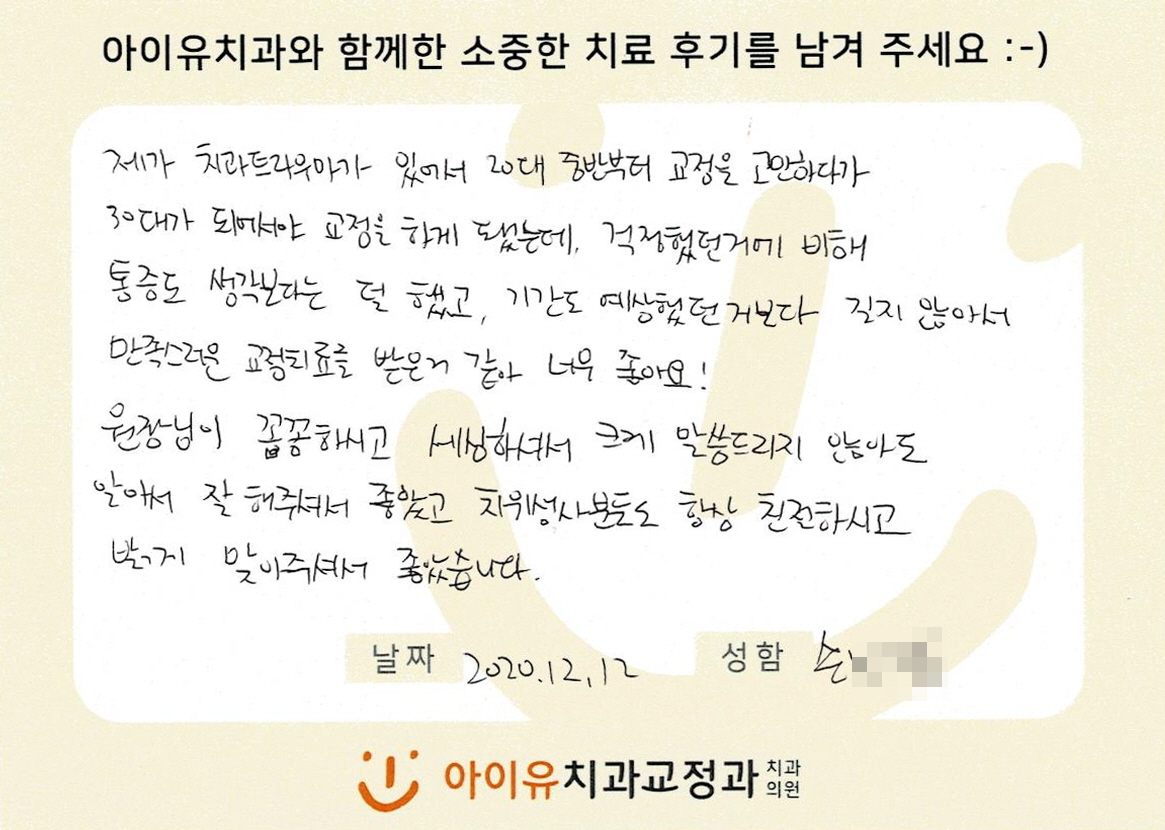 아이유치과와 함께한 소중한 치료 후기를 남겨 주세요 :-)
제가 치과트라우마가 있어서 20대 중반부터 교정을 고민하다가
30대가 되어서야 교정을 하게 됐는데, 걱정했던거에 비해
통증도 생각보다는 덜 했고, 기간도 예상했던거보다 길지 않아서
만족스러운 교정치료를 받은거 같아 너무 좋아요!
원장님이 꼼꼼하시고 세심하셔서 크게 말씀드리지 않아도
알아서 잘 해주셔서 좋았고 치위생사분들도 항상 친절하시고
밝게 맞이주셔서 좋았습니다.
날짜 2020.12.12 성함 손
아이유치과교정과 치과의원